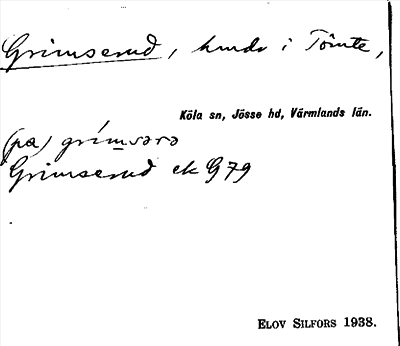 Grimserud, hmdr i Tömte,
Köla sn, Jösse hd, Värmlands län.
(pa) grímsərə
Grimserud ek G 79
ELOV SILFORS 1938.